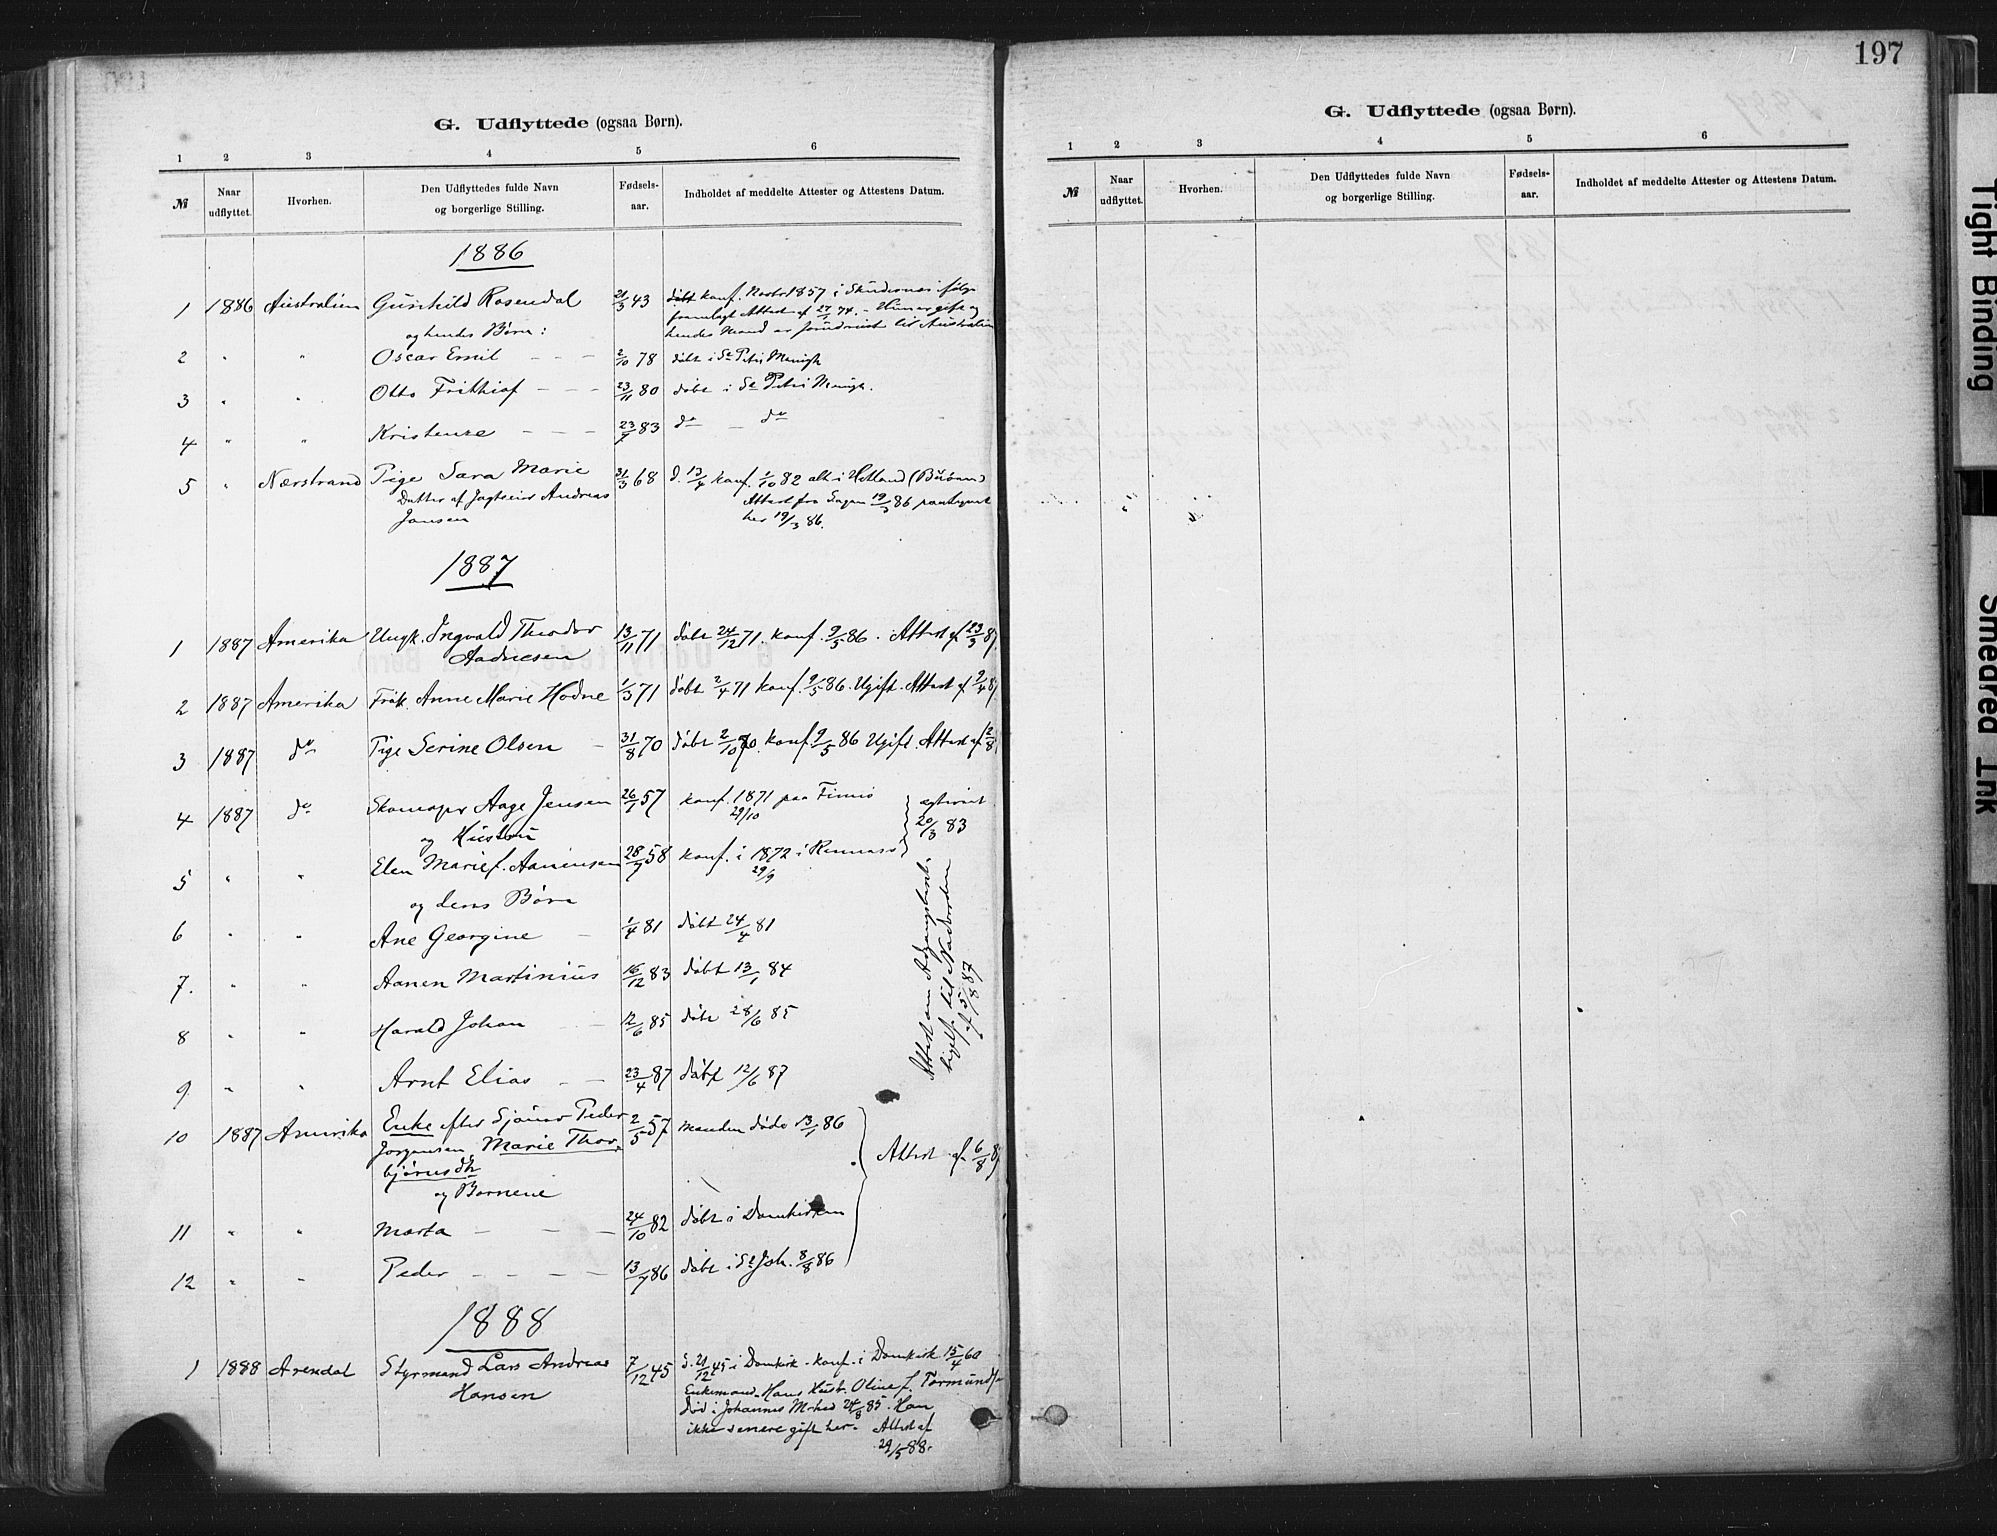 G. Udflyttede (ogsaa Børn).
1 2 3 4 5 6
№ Naar udflyttet. Hvorhen. Den Udflyttedes fulde Navn og borgerlige Stilling. Fødsels-aar. Indholdet af meddelte Attester og Attestens Datum.
1886
1 1886 Australien Gunhild Rosendal 21/3 43 døbt konf. 1857 i Skudesnes ifølge
fremlagt Attest af 27/1 74. - Hun er gift og
og hendes Børn: hendes Mand er forudreist til Australien
2 " " Oscar Emil - - - 2/10 78 døbt i St Petri Menigh
3 " " Otto Frithiof - - - 23/11 80 døbt i St Petri Menigh.
4 " " Kristenze - - - 23/9 83 do - do
5 " Nærstrand Pige Sara Marie 31/3 68 d. 13/4 konf. 1/10 82 alt i Hetland
Datter af Andreas Attest fra 19/3 86
Jansen her 19/3 86.
1887
1 1887 Amerika Ungk. Ingvald Theodor 13/11 71 døbt 24/12 71. konf. 9/5 86. Attest af 23/3 87
Aadnesen
2 1887 Amerika Frøk. Anne Marie Hodne 1/3 71 døbt 2/4 71 konf. 9/5 86. Ugift. Attest af 2/4 87
3 1887 do Pige Serine Olsen - 31/8 70 døbt 2/10 70. konf. 9/5 86 Ugift. Attest af
4 1887 do Skomager Aage Jensen 26/1 57 konf. 1871 paa Finnø
29/10
og Hustru 20/3 83
5 " " Elen Marie f. Aanensen 28/9 58 konf. i 1872 i Rennesø
29/9
og deres Børn
6 " " Ane Georgine - 1/4 81 døbt 24/4 81
7. " " Aanen Martinius 16/12 83 døbt 13/1 84
8 " " Harald Johan 12/6 85 døbt 28/6 85
9 " " Arnt Elias - - 23/4 87 døbt 12/6 87
Attest om
til Nadveren
af 5/8 87
10 1887 Amerika Enke efter Sjømd Peder 2/5 57 manden døde 13/1 86
Jørgensen, Marie Thor- Attest af 6/8 87
bjørnsdtr
og Børnene
11 " " Marta - - - 24/10 82 døbt i Domkirken
12 " " Peder - - - - 13/7 86 døbt i St Joh. 8/8 86
1888
1 1888 Arendal Styrmand Lars Andreas 7/12 45 d. 21/12 45 i Domkirk. konf. i Domkirk 15/4 60
Hansen Enkemand. Hans Hust. Oline f. Tormunds
død i Johannes M-hed 24/8 85. Han
ikke senere gift her. Attest af
29/5 88.
197
G. Udflyttede (ogsaa Børn).
1 2 3 4 5 6
№ Naar udflyttet. Hvorhen. Den Udflyttedes fulde Navn og borgerlige Stilling. Fødsels-aar. Indholdet af meddelte Attester og Attestens Datum.
Tight Binding
Smeared Ink